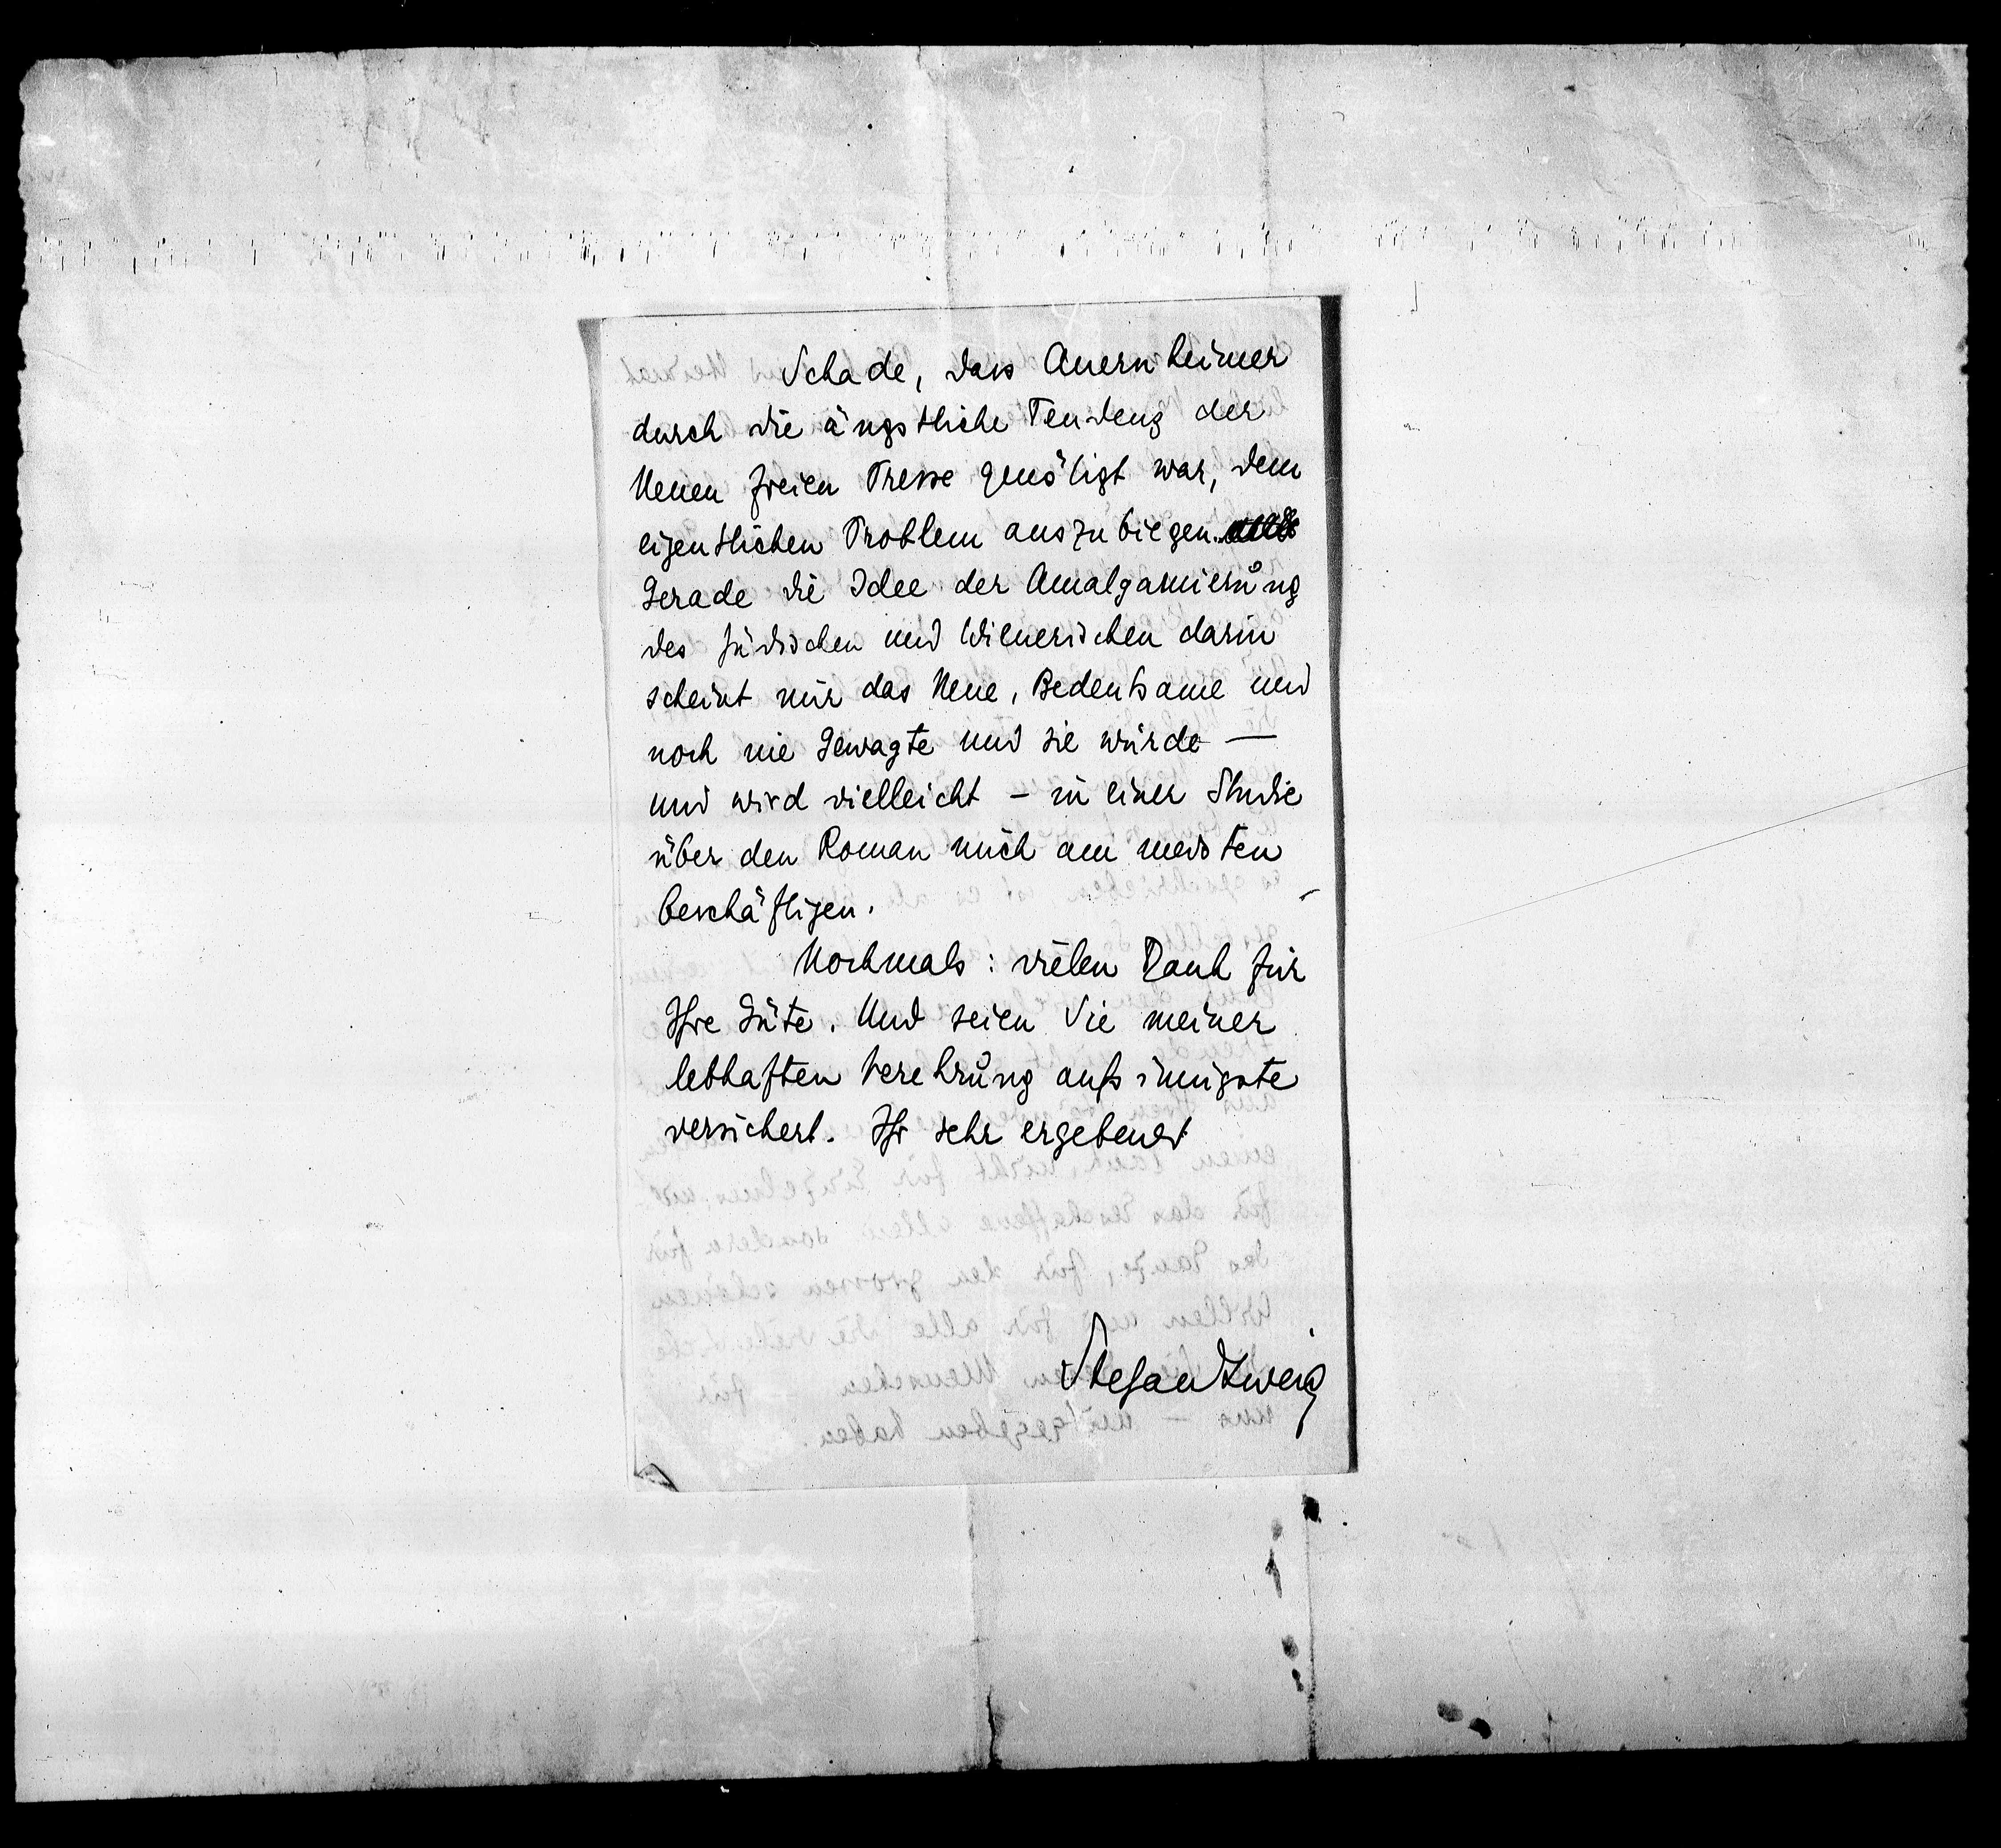 Schade, dass Auernheimer
durch die ängstliche Tendenz der
Neuen freien Presse genötigt war, dem
eigentlichen Problem auszubiegen.
Gerade die Idee der Amalgamierung
des Jüdischen und Wienerischen darin
scheint mir das Neue, Bedeutsame und
noch nie Gewagte und sie würde —
und wird vielleicht – in einer Studie
über den Roman mich am meisten
beschäftigen.
Nochmals: vielen Dank für
Ihre Güte. Und seien Sie meiner
lebhaften Verehrung aufs innigste
versichert. Ihr sehr ergebener
Stefan Zweig